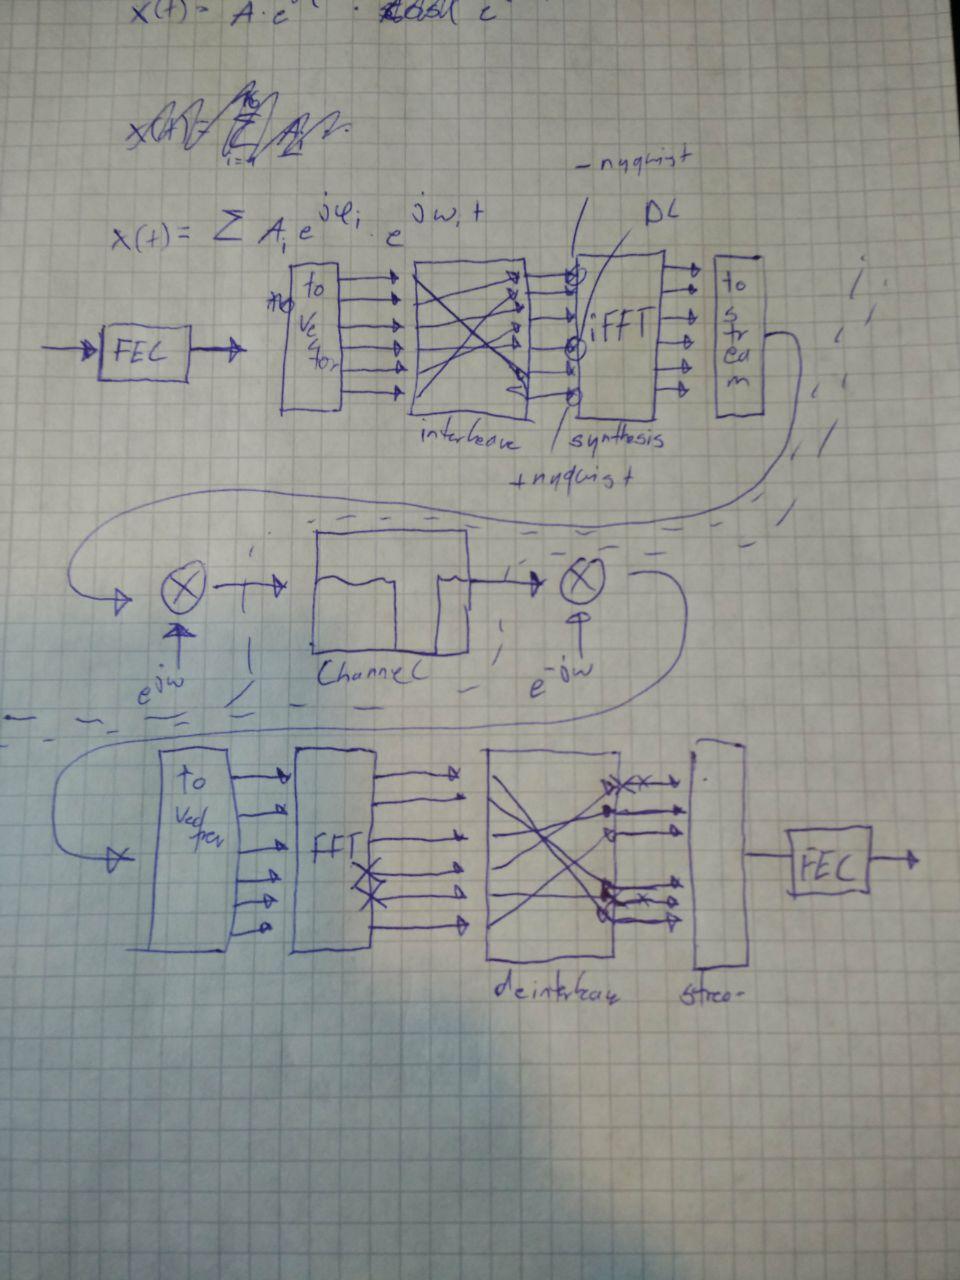 x(t) = A · e
x(t) = Σ A_i e^{jφ_i} · e^{jω_i t}
- nyquist
DC
FEC
to
Vec
tor
interleave
iFFT
synthesis
+ nyquist
to
s
tr
ea
m
e^{jω}
Channel
e^{-jω}
to
FFT
deinterleav
FEC